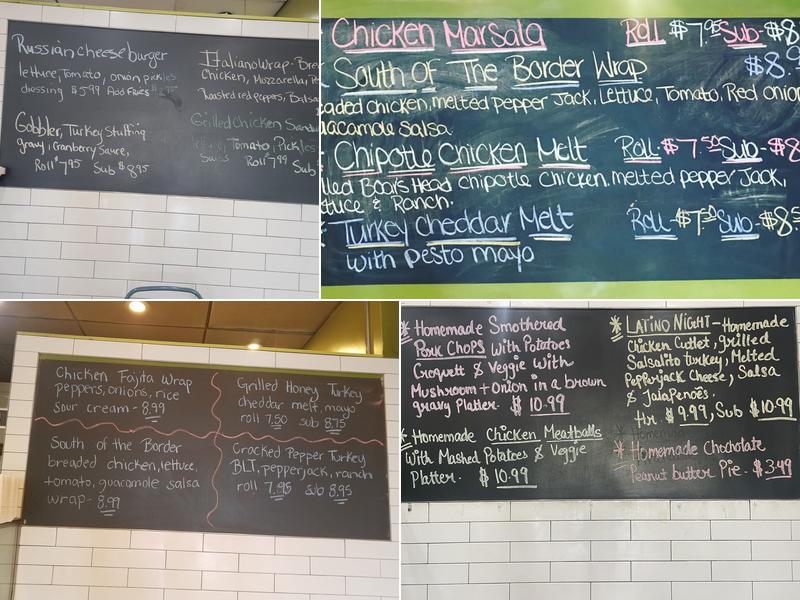 Russian cheeseburger
lettuce, Tomato, onion pickles
dressing $5.99 Add Fries
Gobbler, Turkey Stuffing
gravy, Cranberry Sauce,
Roll $7.95 Sub $8.95
Italiano Wrap-Bre
Chicken, Mozzarella,
roasted red peppers, Balsa
Grilled Chicken Sand
Tomato, Pickles
Swiss Roll $7.99 Sub
Chicken Marsala Roll $7.95 Sub-$8
South Of The Border Wrap $8.9
eaded chicken, melted Pepper Jack, Lettuce, Tomato, Red onion
uacamole Salsa
Chipotle Chicken Melt Roll-$7.50 Sub-$8.
lled Boar's Head chipotle Chicken, melted pepper Jack,
ttuce & Ranch.
Turkey Cheddar Melt Roll-$7.50 Sub-$8.
with pesto mayo
Chicken Fajita Wrap
peppers, onions, rice
sour cream - 8.99
Grilled Honey Turkey
cheddar melt, mayo
roll 7.50 sub 8.75
South of the Border
breaded chicken, lettuce,
tomato, guacamole salsa
wrap - 8.99
Cracked Pepper Turkey
BLT, pepperjack, ranch
roll 7.95 sub 8.95
* Homemade Smothered
Pork Chops with Potatoes
Croquett & Veggie with
Mushroom + Onion in a brown
gravy Platter. $ 10.99
* Homemade Chicken Meatballs
with Mashed Potatoes & Veggie
Platter. $ 10.99
* Latino Night - Homemade
Chicken Cutlet, grilled
Salsalito turkey, Melted
Pepperjack Cheese, Salsa
& Jalapenoes.
Hr. $9.99, Sub $10.99
* Homemade Chocholate
Peanut butter Pie. $3.49